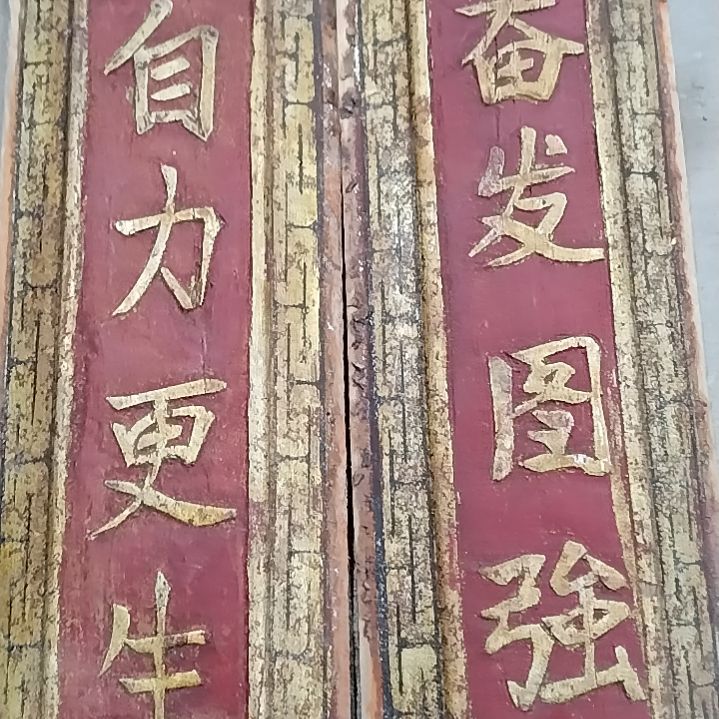 奋发图強
自力更生